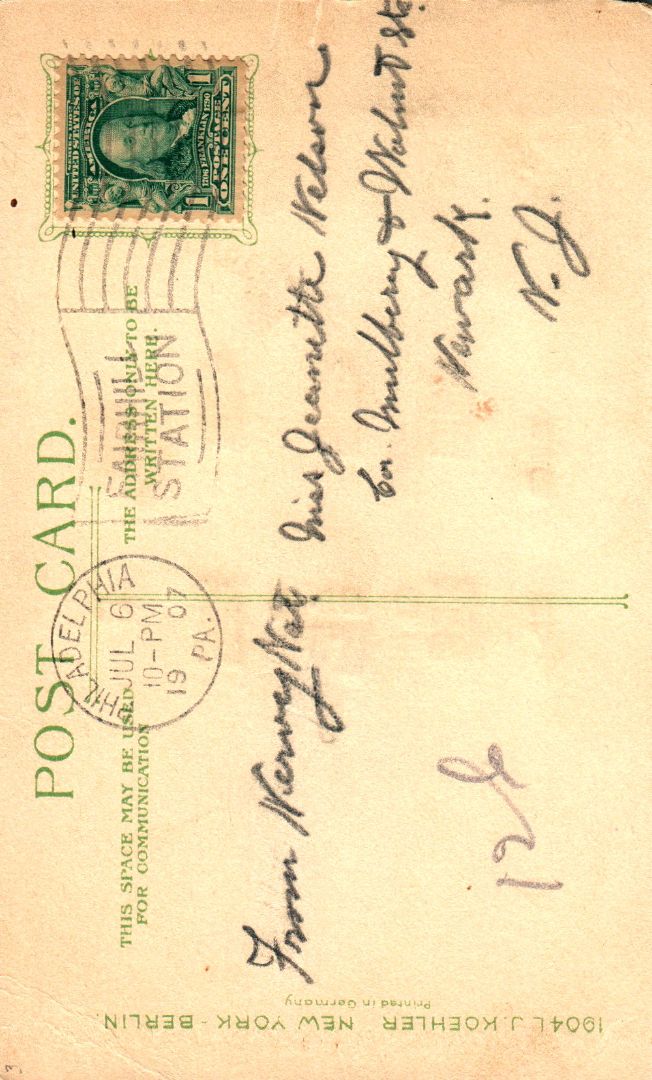 POST CARD.
THIS SPACE MAY BE USED
FOR COMMUNICATION
THE ADDRESS ONLY TO BE
WRITTEN HERE.
SERIES 1902
UNITED STATES OF
AMERICA
1706 FRANKLIN 1790
POSTAGE
1 ONE CENT 1
PHILADELPHIA
JUL 6
10-PM
19 07
PA.
STATION
From
Miss Jeanette Nelson
Cor. Mulberry & Walnut Sts.
Newark.
N. J.
1904 L. J. KOEHLER NEW YORK - BERLIN.
Printed in Germany